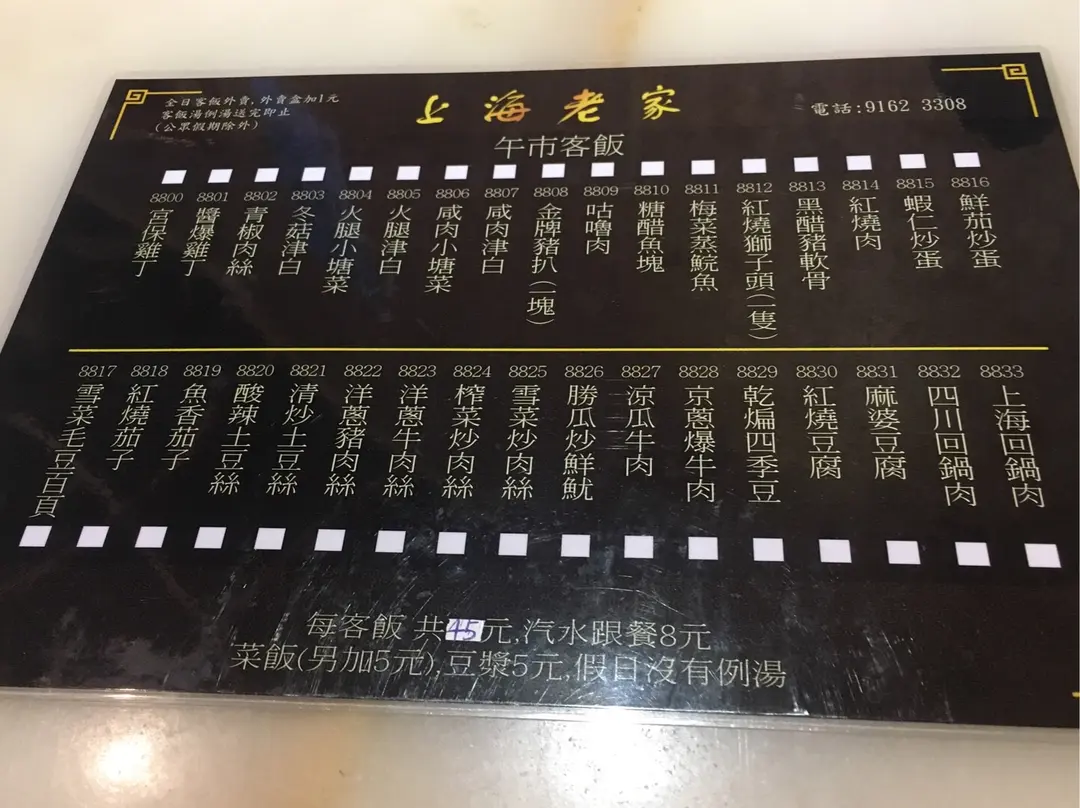 全日客飯外賣,外賣盒加1元
客飯湯例湯送完即止
(公眾假期除外)
上海老家
電話:9162 3308
午市客飯
8800 宮保雞丁
8801 醬爆雞丁
8802 青椒肉絲
8803 冬菇津白
8804 火腿小塘菜
8805 火腿津白
8806 咸肉小塘菜
8807 咸肉津白
8808 金牌豬扒(一塊)
8809 咕嚕肉
8810 糖醋魚塊
8811 梅菜蒸鯇魚
8812 紅燒獅子頭(一隻)
8813 黑醋豬軟骨
8814 紅燒肉
8815 蝦仁炒蛋
8816 鮮茄炒蛋
8817 雪菜毛豆百頁
8818 紅燒茄子
8819 魚香茄子
8820 酸辣土豆絲
8821 清炒土豆絲
8822 洋蔥豬肉絲
8823 洋蔥牛肉絲
8824 榨菜炒肉絲
8825 雪菜炒肉絲
8826 勝瓜炒鮮魷
8827 涼瓜牛肉
8828 京蔥爆牛肉
8829 乾煸四季豆
8830 紅燒豆腐
8831 麻婆豆腐
8832 四川回鍋肉
8833 上海回鍋肉
每客飯 共45元,汽水跟餐8元
菜飯(另加5元),豆漿5元,假日沒有例湯